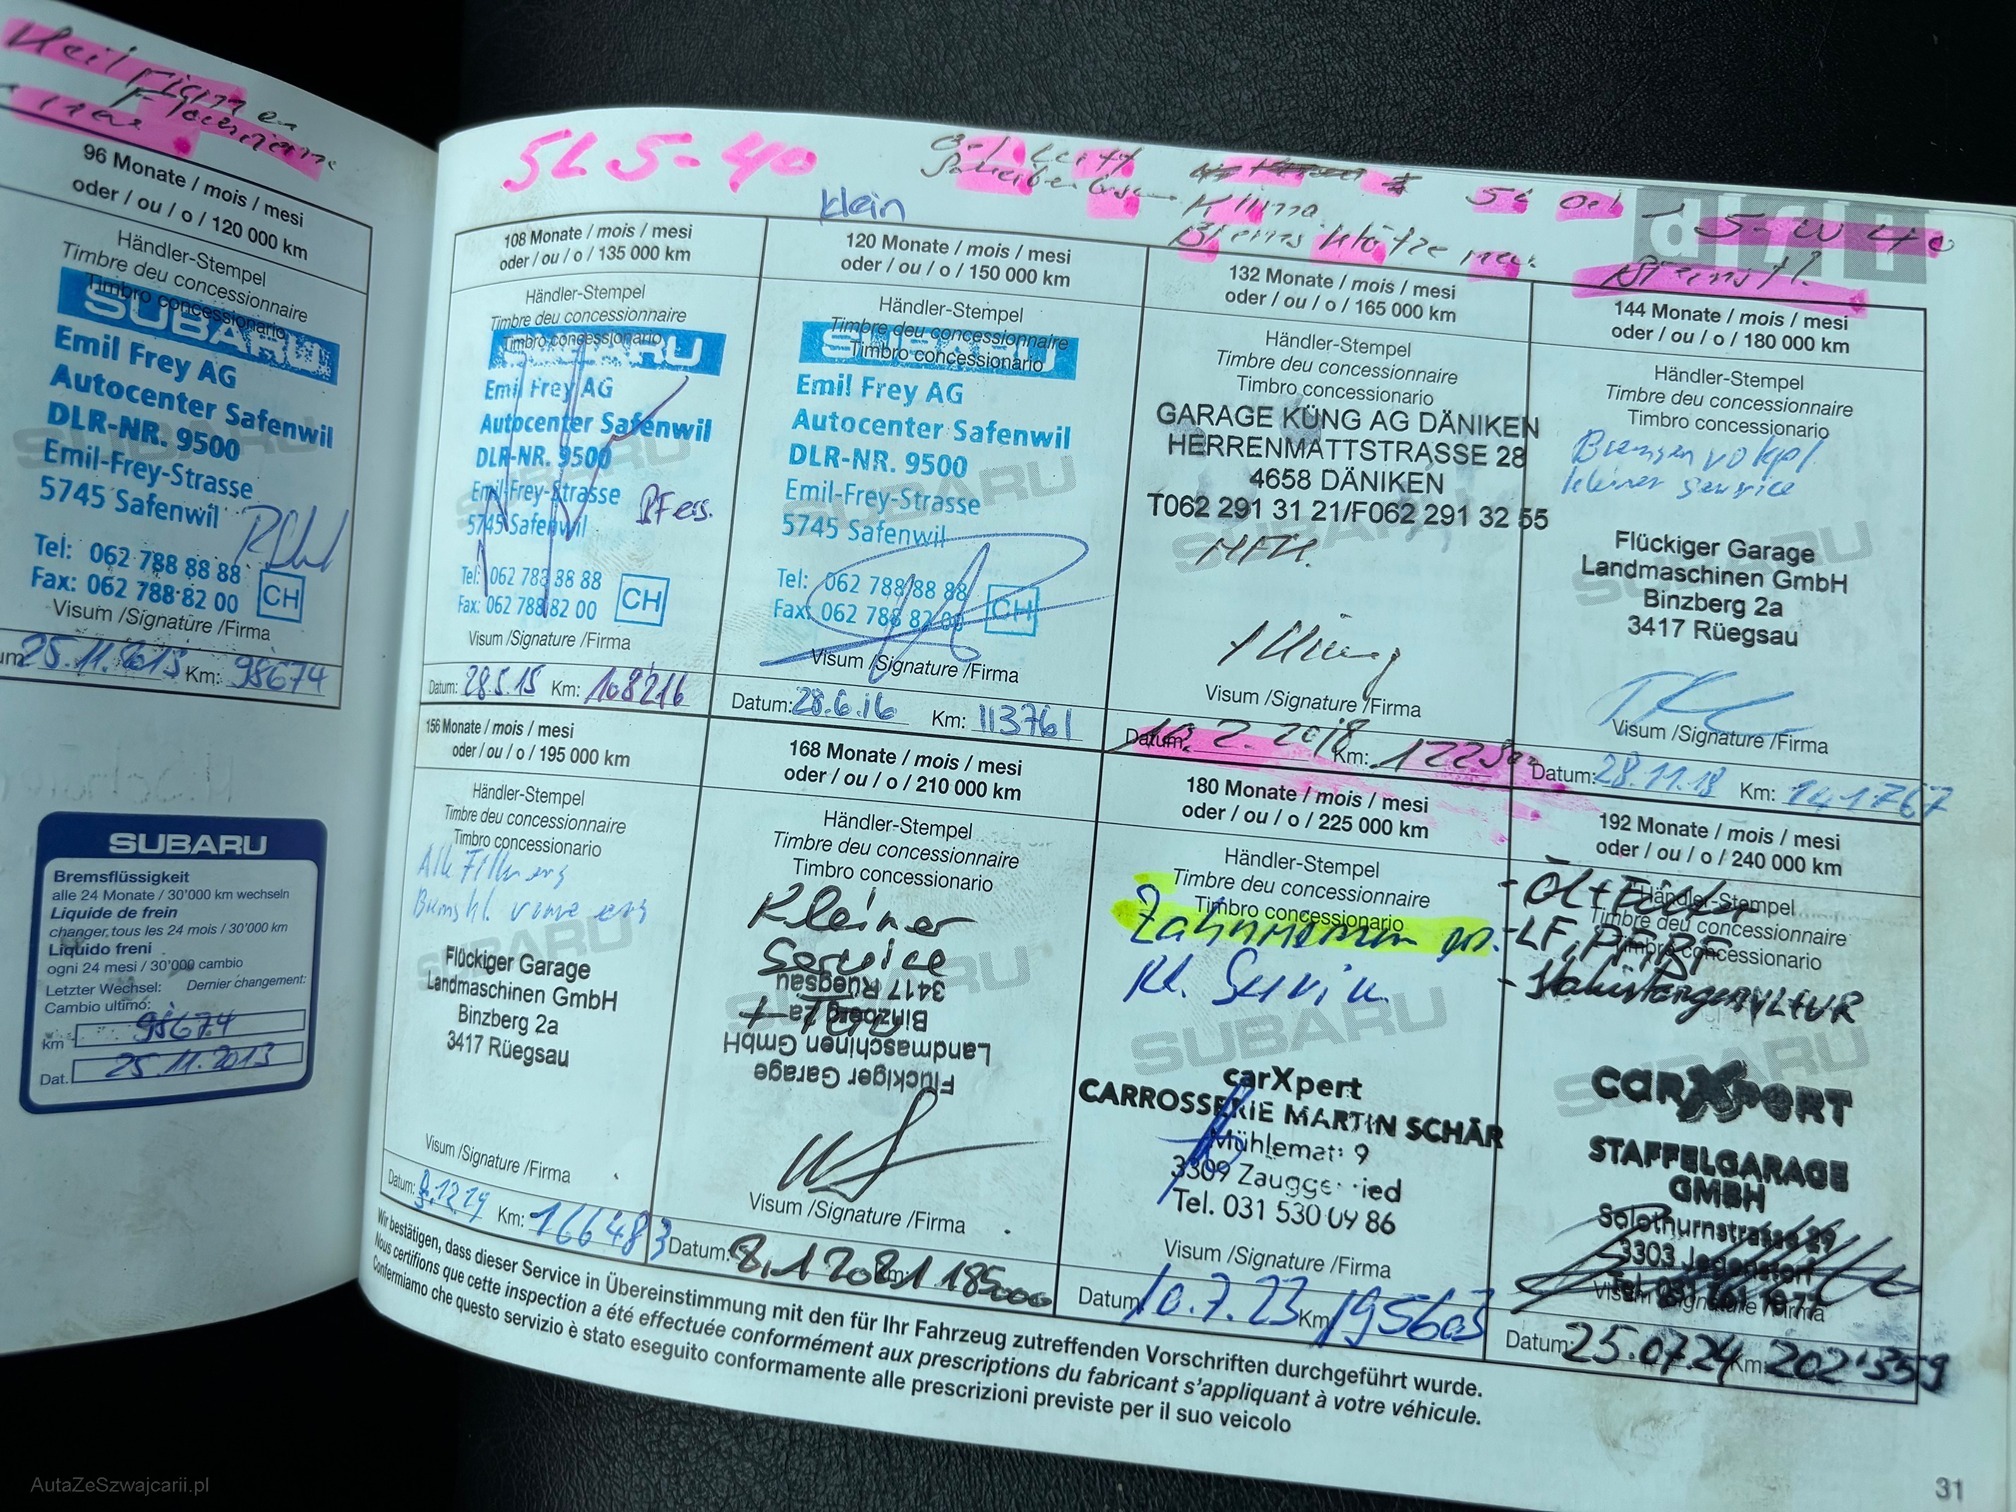 96 Monate / mois / mesi
oder / ou / o / 120 000 km
Händler-Stempel
Timbre deu concessionnaire
Timbro concessionario
SUBARU
Emil Frey AG
Autocenter Safenwil
DLR-NR. 9500
Emil-Frey-Strasse
5745 Safenwil
Tel: 062 788 88 88
Fax: 062 788 82 00
CH
Visum /Signature /Firma
Km: 98674
SUBARU
Bremsflüssigkeit
alle 24 Monate / 30'000 km wechseln
Liquide de frein
changer, tous les 24 mois / 30'000 km
Liquido freni
ogni 24 mesi / 30'000 cambio
Letzter Wechsel: Dernier changement:
Cambio ultimo:
km 98674
Dat. 25.11.2013
5L 5-40
klein
Klima
5L Oel
5-W 40
108 Monate / mois / mesi
oder / ou / o / 135 000 km
Händler-Stempel
Timbre deu concessionnaire
Timbro concessionario
SUBARU
Emil Frey AG
Autocenter Safenwil
DLR-NR. 9500
Emil-Frey-Strasse
5745 Safenwil
Tel: 062 788 88 88
Fax: 062 788 82 00
CH
Visum /Signature /Firma
Datum: 28.5.15 Km: 108216
120 Monate / mois / mesi
oder / ou / o / 150 000 km
Händler-Stempel
Timbre deu concessionnaire
Timbro concessionario
SUBARU
Emil Frey AG
Autocenter Safenwil
DLR-NR. 9500
Emil-Frey-Strasse
5745 Safenwil
Tel: 062 788 88 88
Fax: 062 788 82 00
CH
Visum /Signature /Firma
Datum: 28.6.16 Km: 113761
132 Monate / mois / mesi
oder / ou / o / 165 000 km
Händler-Stempel
Timbre deu concessionnaire
Timbro concessionario
GARAGE KÜNG AG DÄNIKEN
HERRENMATTSTRASSE 28
4658 DÄNIKEN
T062 291 31 21/F062 291 32 55
MFK.
Visum /Signature /Firma
Datum: 2. 2018 Km:
144 Monate / mois / mesi
oder / ou / o / 180 000 km
Händler-Stempel
Timbre deu concessionnaire
Timbro concessionario
kleiner service
Flückiger Garage
Landmaschinen GmbH
Binzberg 2a
3417 Rüegsau
Visum /Signature /Firma
Datum: 28.11.18 Km: 141767
156 Monate / mois / mesi
oder / ou / o / 195 000 km
Händler-Stempel
Timbre deu concessionnaire
Timbro concessionario
Flückiger Garage
Landmaschinen GmbH
Binzberg 2a
3417 Rüegsau
Visum /Signature /Firma
Datum: Km: 166483
168 Monate / mois / mesi
oder / ou / o / 210 000 km
Händler-Stempel
Timbre deu concessionnaire
Timbro concessionario
Kleiner
Service
3417 Rüegsau
Binzberg 2a
Landmaschinen GmbH
Flückiger Garage
Visum /Signature /Firma
Datum: 8.12021 185000
180 Monate / mois / mesi
oder / ou / o / 225 000 km
Händler-Stempel
Timbre deu concessionnaire
Timbro concessionario
Zahnriemen
Kl. Service
carXpert
CARROSSERIE MARTIN SCHÄR
3309
Tel. 031 530 09 86
Visum /Signature /Firma
Datum 10.7.23 Km 195603
192 Monate / mois / mesi
oder / ou / o / 240 000 km
Händler-Stempel
Timbre deu concessionnaire
Timbro concessionario
- Öl+Filter
- LF, PF, BF
carXpert
STAFFELGARAGE
GMBH
Solothurnstrasse 29
3303 Jegenstorf
Visum /Signature /Firma
Datum: 25.07.24 Km: 202'359
Wir bestätigen, dass dieser Service in Übereinstimmung mit den für Ihr Fahrzeug zutreffenden Vorschriften durchgeführt wurde.
Nous certifions que cette inspection a été effectuée conformément aux prescriptions du fabricant s'appliquant à votre véhicule.
Confermiamo che questo servizio è stato eseguito conformamente alle prescrizioni previste per il suo veicolo
31
AutaZeSzwajcarii.pl